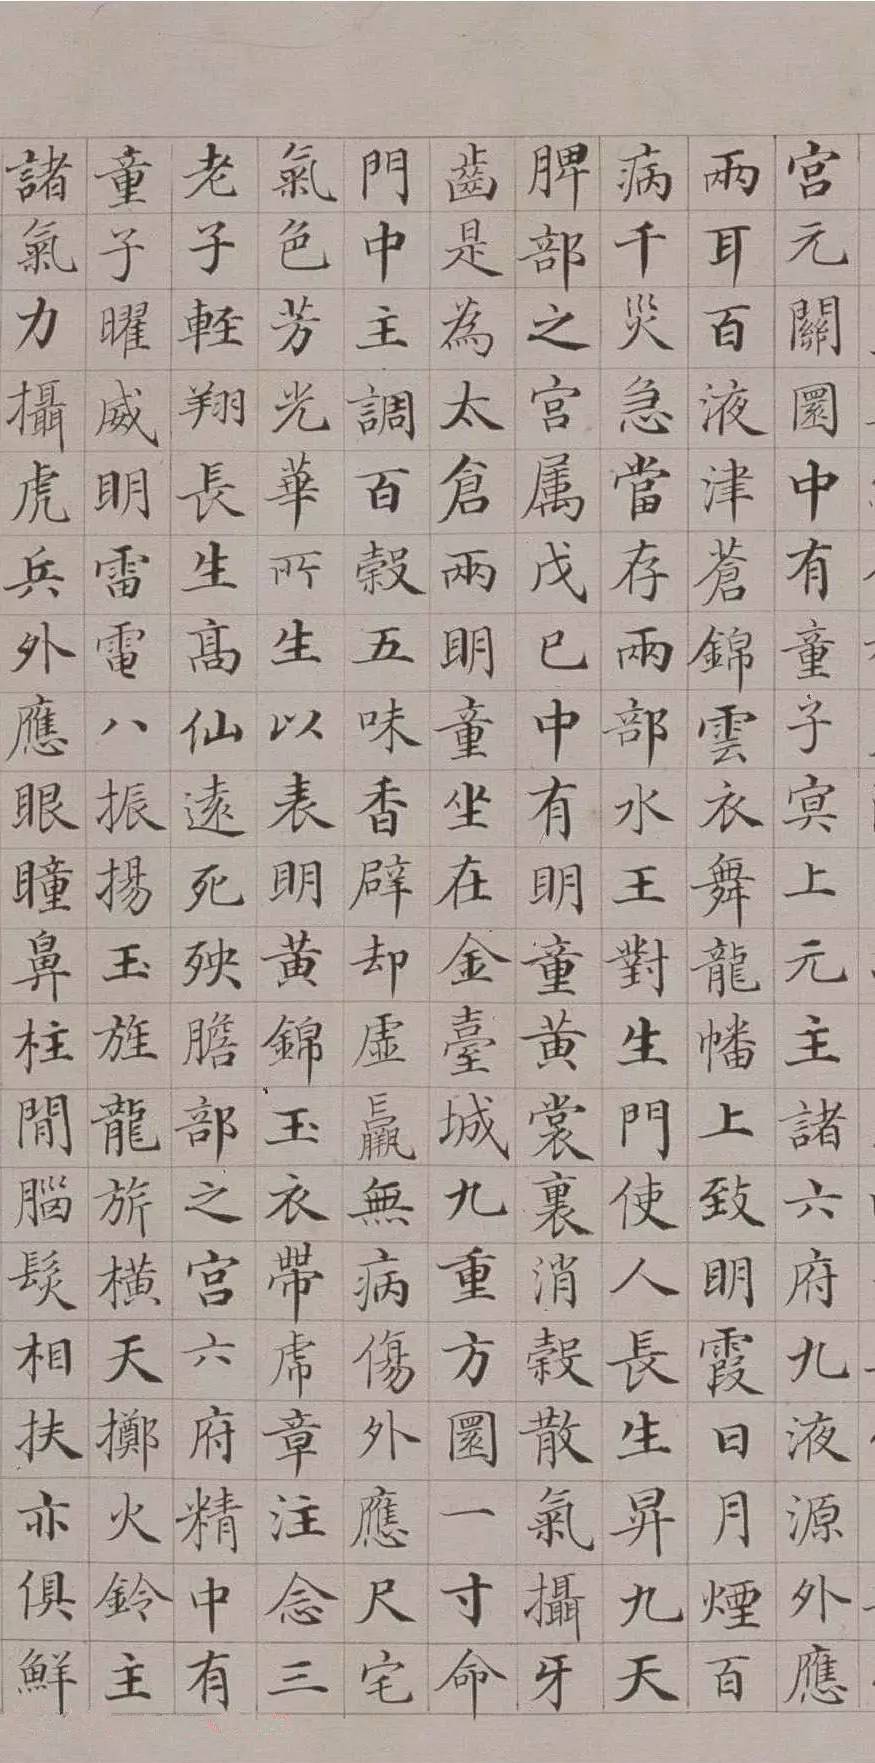 宮元關圎中有童子㝠上元主諸六府九液源外應
兩耳百液津蒼錦雲衣舞龍幡上致明霞日月煙百
病千災急當存兩部水王對生門使人長生昇九天
脾部之宮属戊已中有明童黄裳裏消穀散氣攝牙
齒是為太倉兩明童坐在金臺城九重方圎一寸命
門中主調百穀五味香辟却虛羸無病傷外應尺宅
氣色芳光華所生以表明黄錦玉衣帶虎章注念三
老子軽翔長生髙仙逺死殃膽部之宮六府精中有
童子曜威明雷電八振揚玉旌龍旂横天擲火鈴主
諸氣力攝虎兵外應眼瞳鼻柱閒腦髮相扶亦俱鮮